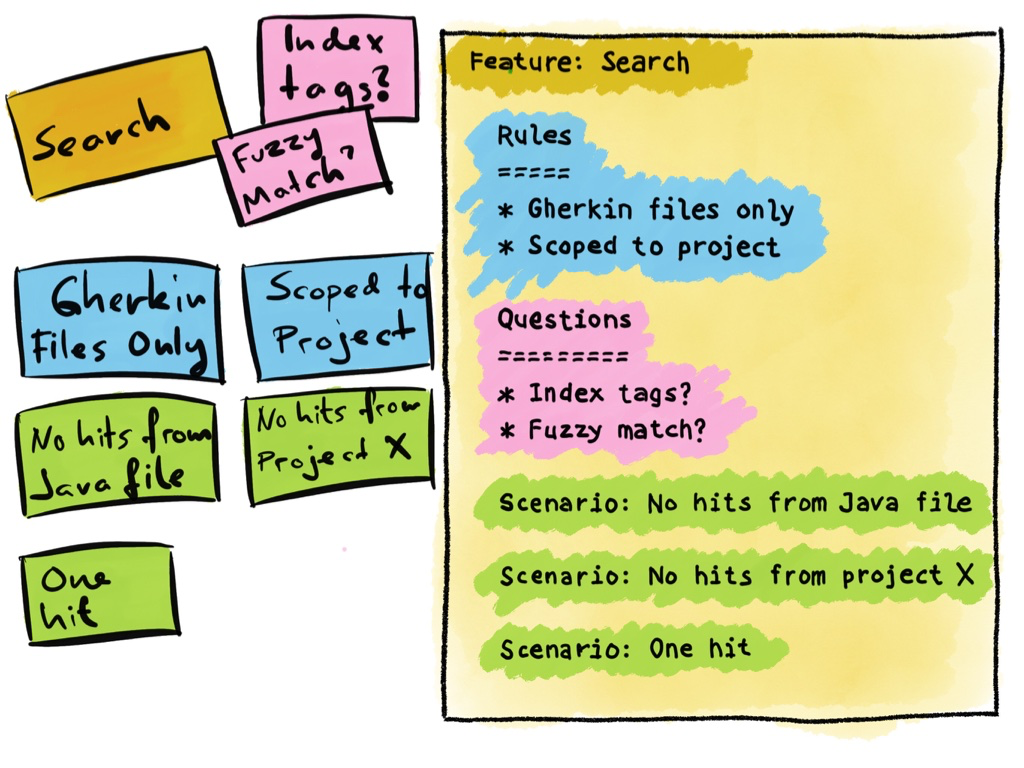 Index
tags?
Search
Fuzzy
Match?
Gherkin
Files Only
Scoped to
Project
No hits from
Java file
No hits from
Project X
One
hit
Feature: Search
Rules
=====
* Gherkin files only
* Scoped to project
Questions
=========
* Index tags?
* Fuzzy match?
Scenario: No hits from Java file
Scenario: No hits from project X
Scenario: One hit